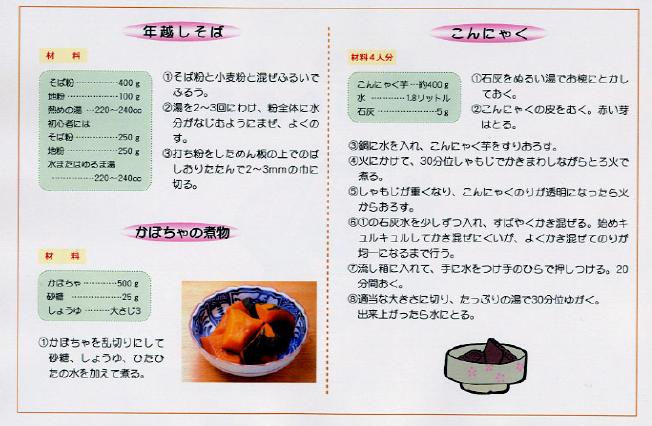 年越しそば
材料
そば粉 400g
地粉 100g
熱めの湯 …220〜240cc
初心者には
そば粉 250g
地粉 250g
水またはゆるま湯
………220〜240cc
①そば粉と小麦粉と混ぜふるいで
ふるう。
②湯を2〜3回にわけ、粉全体に水
分がなじむようにまぜ、よくの
す。
③打ち粉をしためん板の上でのば
しおりたたんで2〜3mmの巾に
切る。
かぼちゃの煮物
材料
かぼちゃ 500g
砂糖 25g
しょうゆ 大さじ3
①かぼちゃを乱切りにして
砂糖、しょうゆ、ひたひ
たの水を加えて煮る。
こんにゃく
材料4人分
こんにゃく芋…約400g
水 1.8リットル
石灰 5g
①石灰をぬるい湯でお椀にとかし
ておく。
②こんにゃくの皮をむく。赤い芽
はとる。
③鍋に水を入れ、こんにゃく芋をすりおろす。
④火にかけて、30分位しゃもじでかきまわしながらとろ火で
煮る。
⑤しゃもじが重くなり、こんにゃくのりが透明になったら火
からおろす。
⑥①の石灰水を少しずつ入れ、すばやくかき混ぜる。始めキ
ュルキュルしてかき混ぜにくいが、よくかき混ぜてのりが
均一になるまで行う。
⑦流し箱に入れて、手に水をつけ手のひらで押しつける。20
分間おく。
⑧適当な大きさに切り、たっぷりの湯で30分位ゆがく。
出来上がったら水にとる。